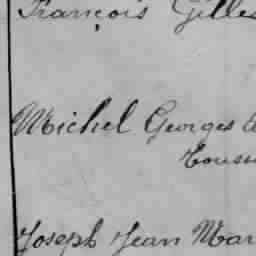 François Gilles
Michel Georges
Joseph Jean Mar